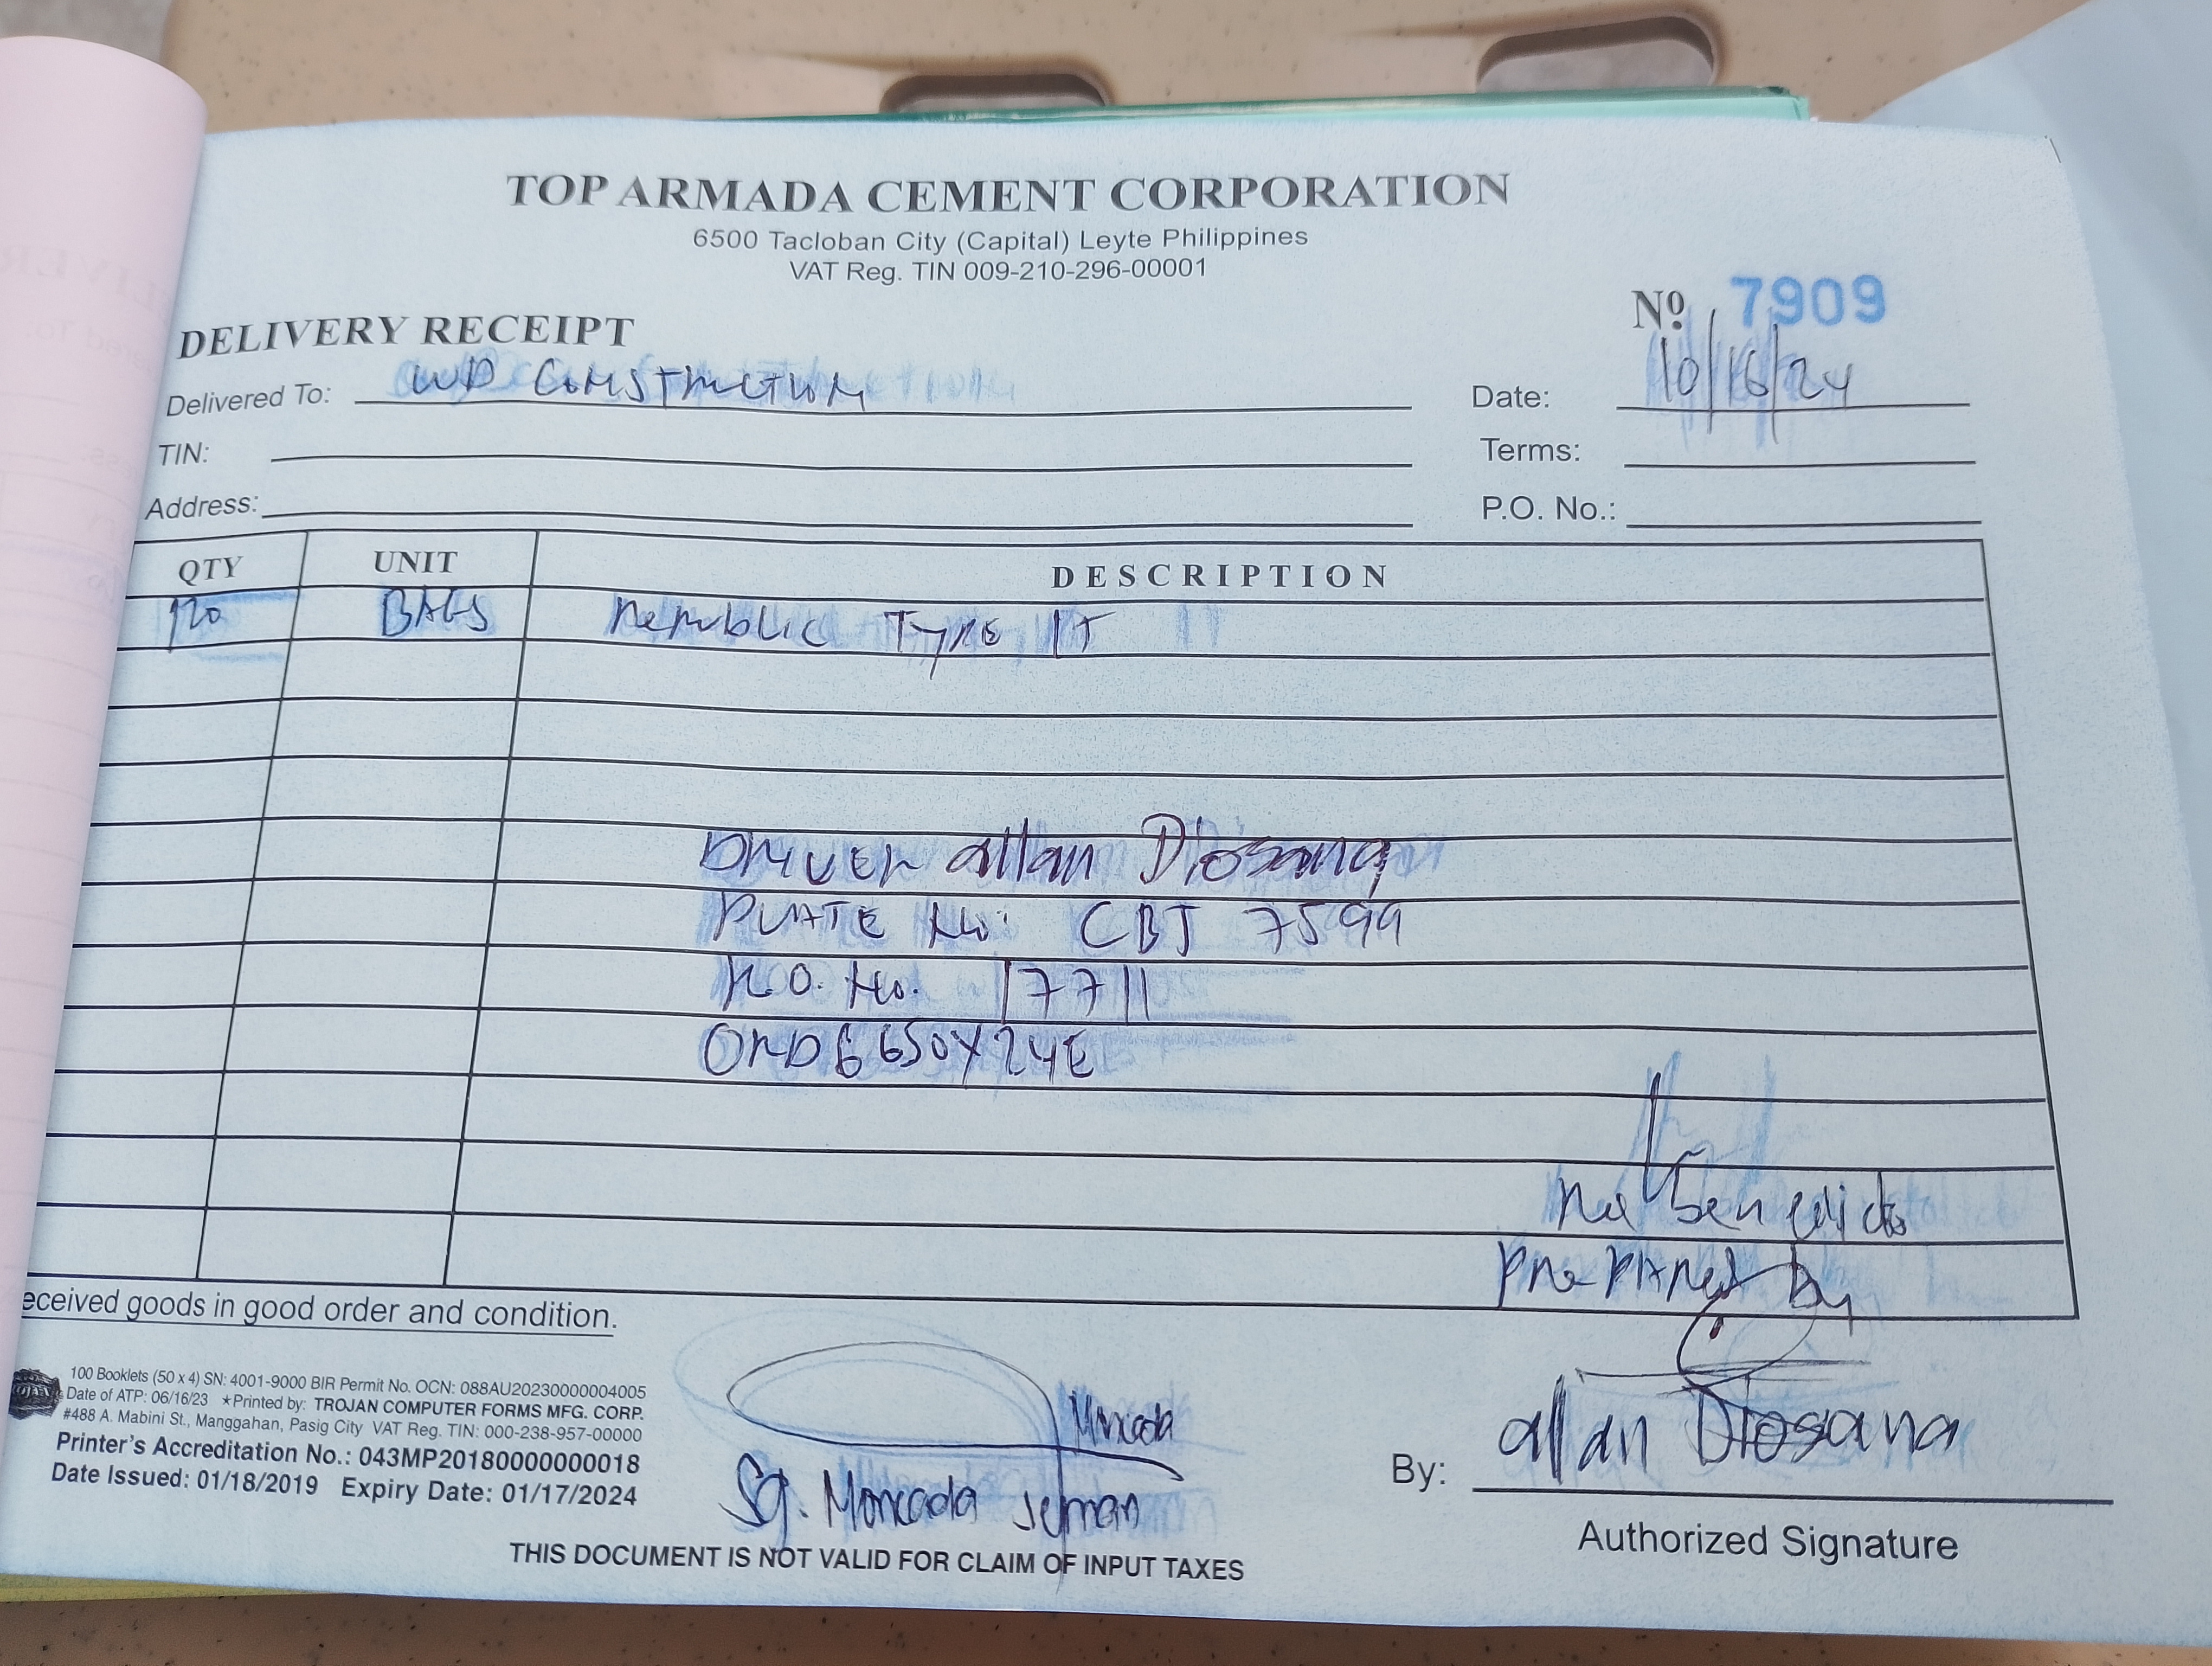 TOP ARMADA CEMENT CORPORATION
6500 Tacloban City (Capital) Leyte Philippines
VAT Reg. TIN 009-210-296-00001
Nº 7909
DELIVERY RECEIPT
Delivered To: WD CONSTRUCTION
Date: 10/16/24
TIN:
Terms:
Address:
P.O. No.:
QTY UNIT DESCRIPTION
120 BAGS Republic Type 1T
DRIVER allan Diosana
PLATE No: CBJ 7599
R.O. No. 17711
ORD6650Y24E
Benedicto
Prepared By
eceived goods in good order and condition.
100 Booklets (50 x 4) SN: 4001-9000 BIR Permit No. OCN: 088AU20230000004005
Date of ATP: 06/16/23 ★Printed by: TROJAN COMPUTER FORMS MFG. CORP.
#488 A. Mabini St., Manggahan, Pasig City VAT Reg. TIN: 000-238-957-00000
Printer's Accreditation No.: 043MP20180000000018
Date Issued: 01/18/2019 Expiry Date: 01/17/2024
Moncada
SG. Moncada Jeman
By: allan Diosana
Authorized Signature
THIS DOCUMENT IS NOT VALID FOR CLAIM OF INPUT TAXES